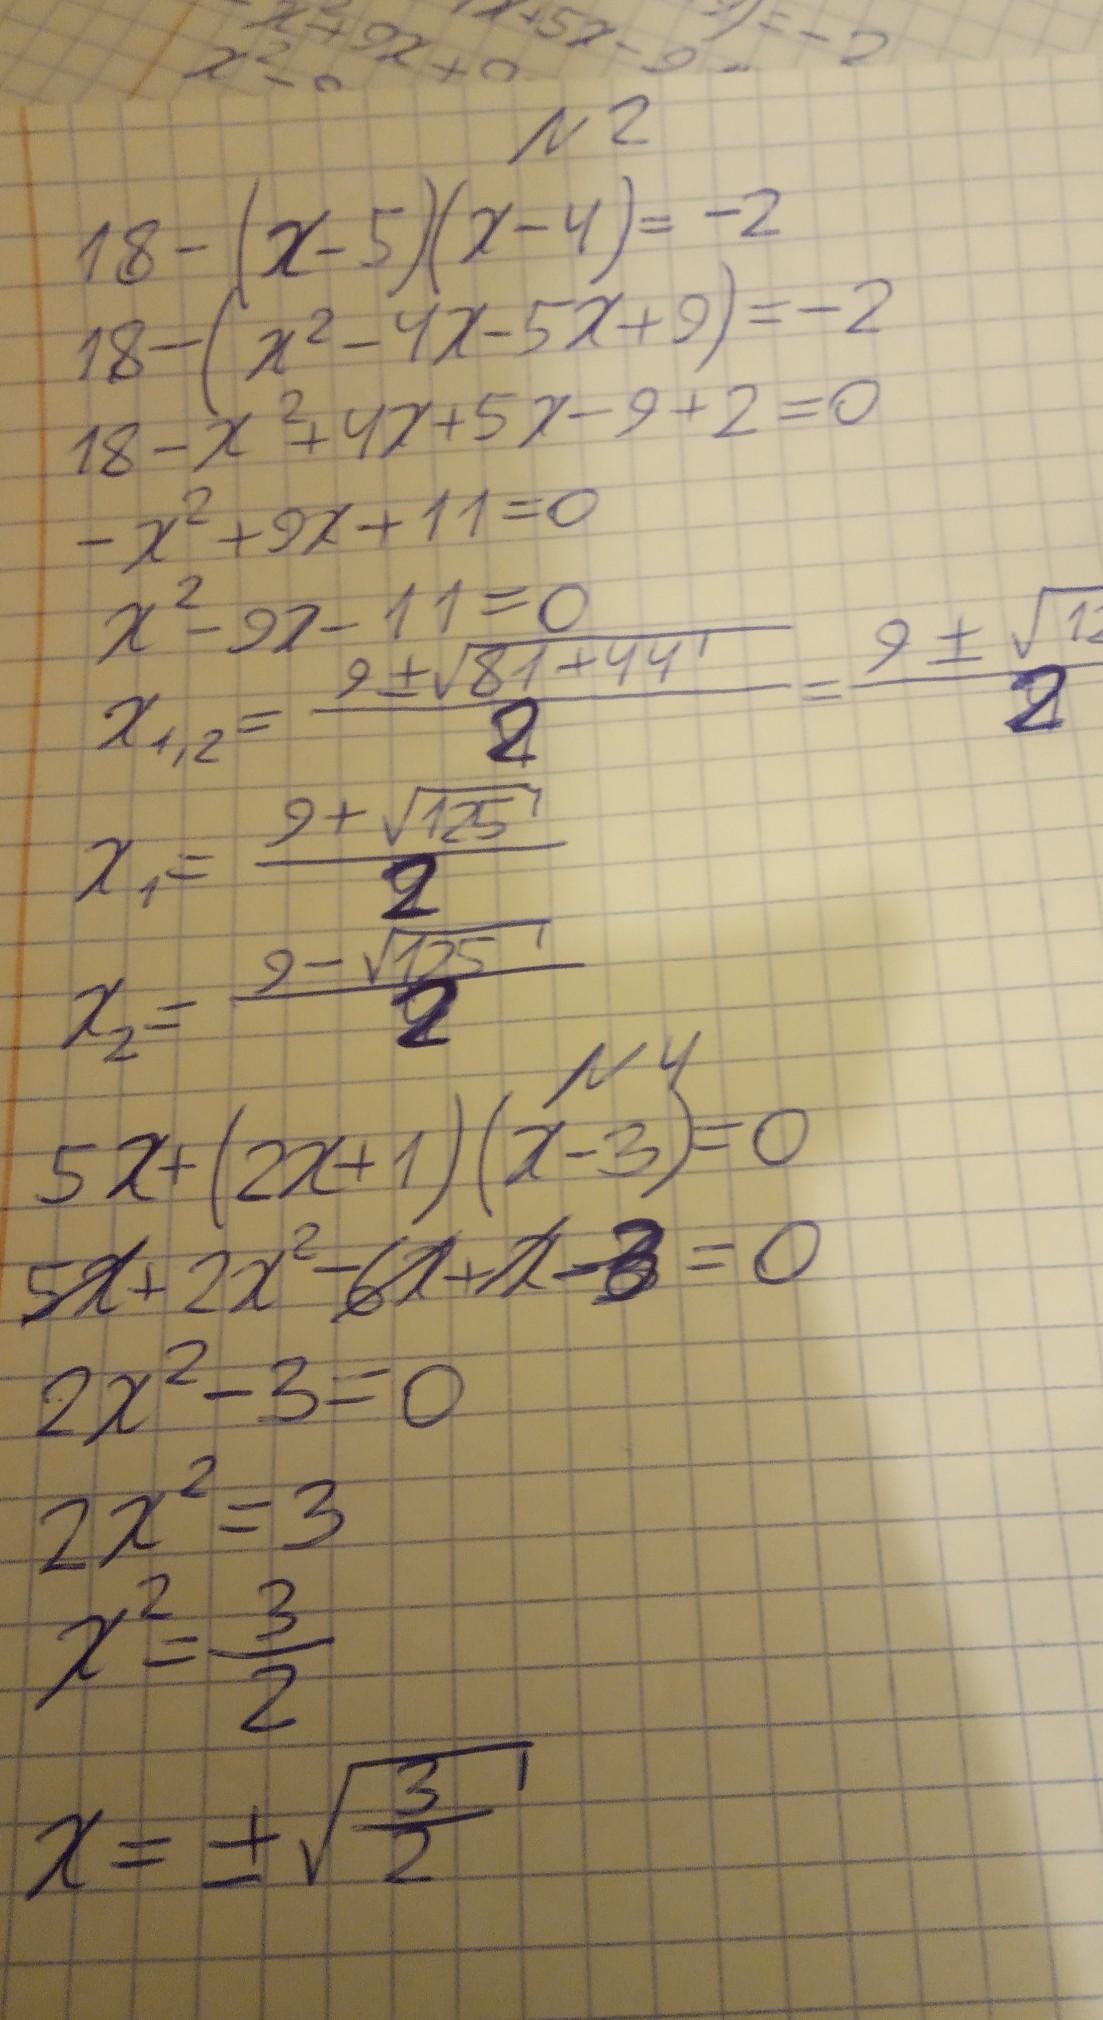 x² - 9
№2
18-(x-5)(x-4)= -2
18-(x²-4x-5x+9)=-2
18-x²+4x+5x-9+2=0
-x²+9x+11=0
x²-9x-11=0
x₁,₂= (9±√(81+44))/2 = (9±√12)/2
x₁= (9+√125)/2
x₂= (9-√125)/2
№4
5x+(2x+1)(x-3)=0
5x+2x²-6x+x-3=0
2x²-3=0
2x²=3
x²=3/2
x=±√(3/2)